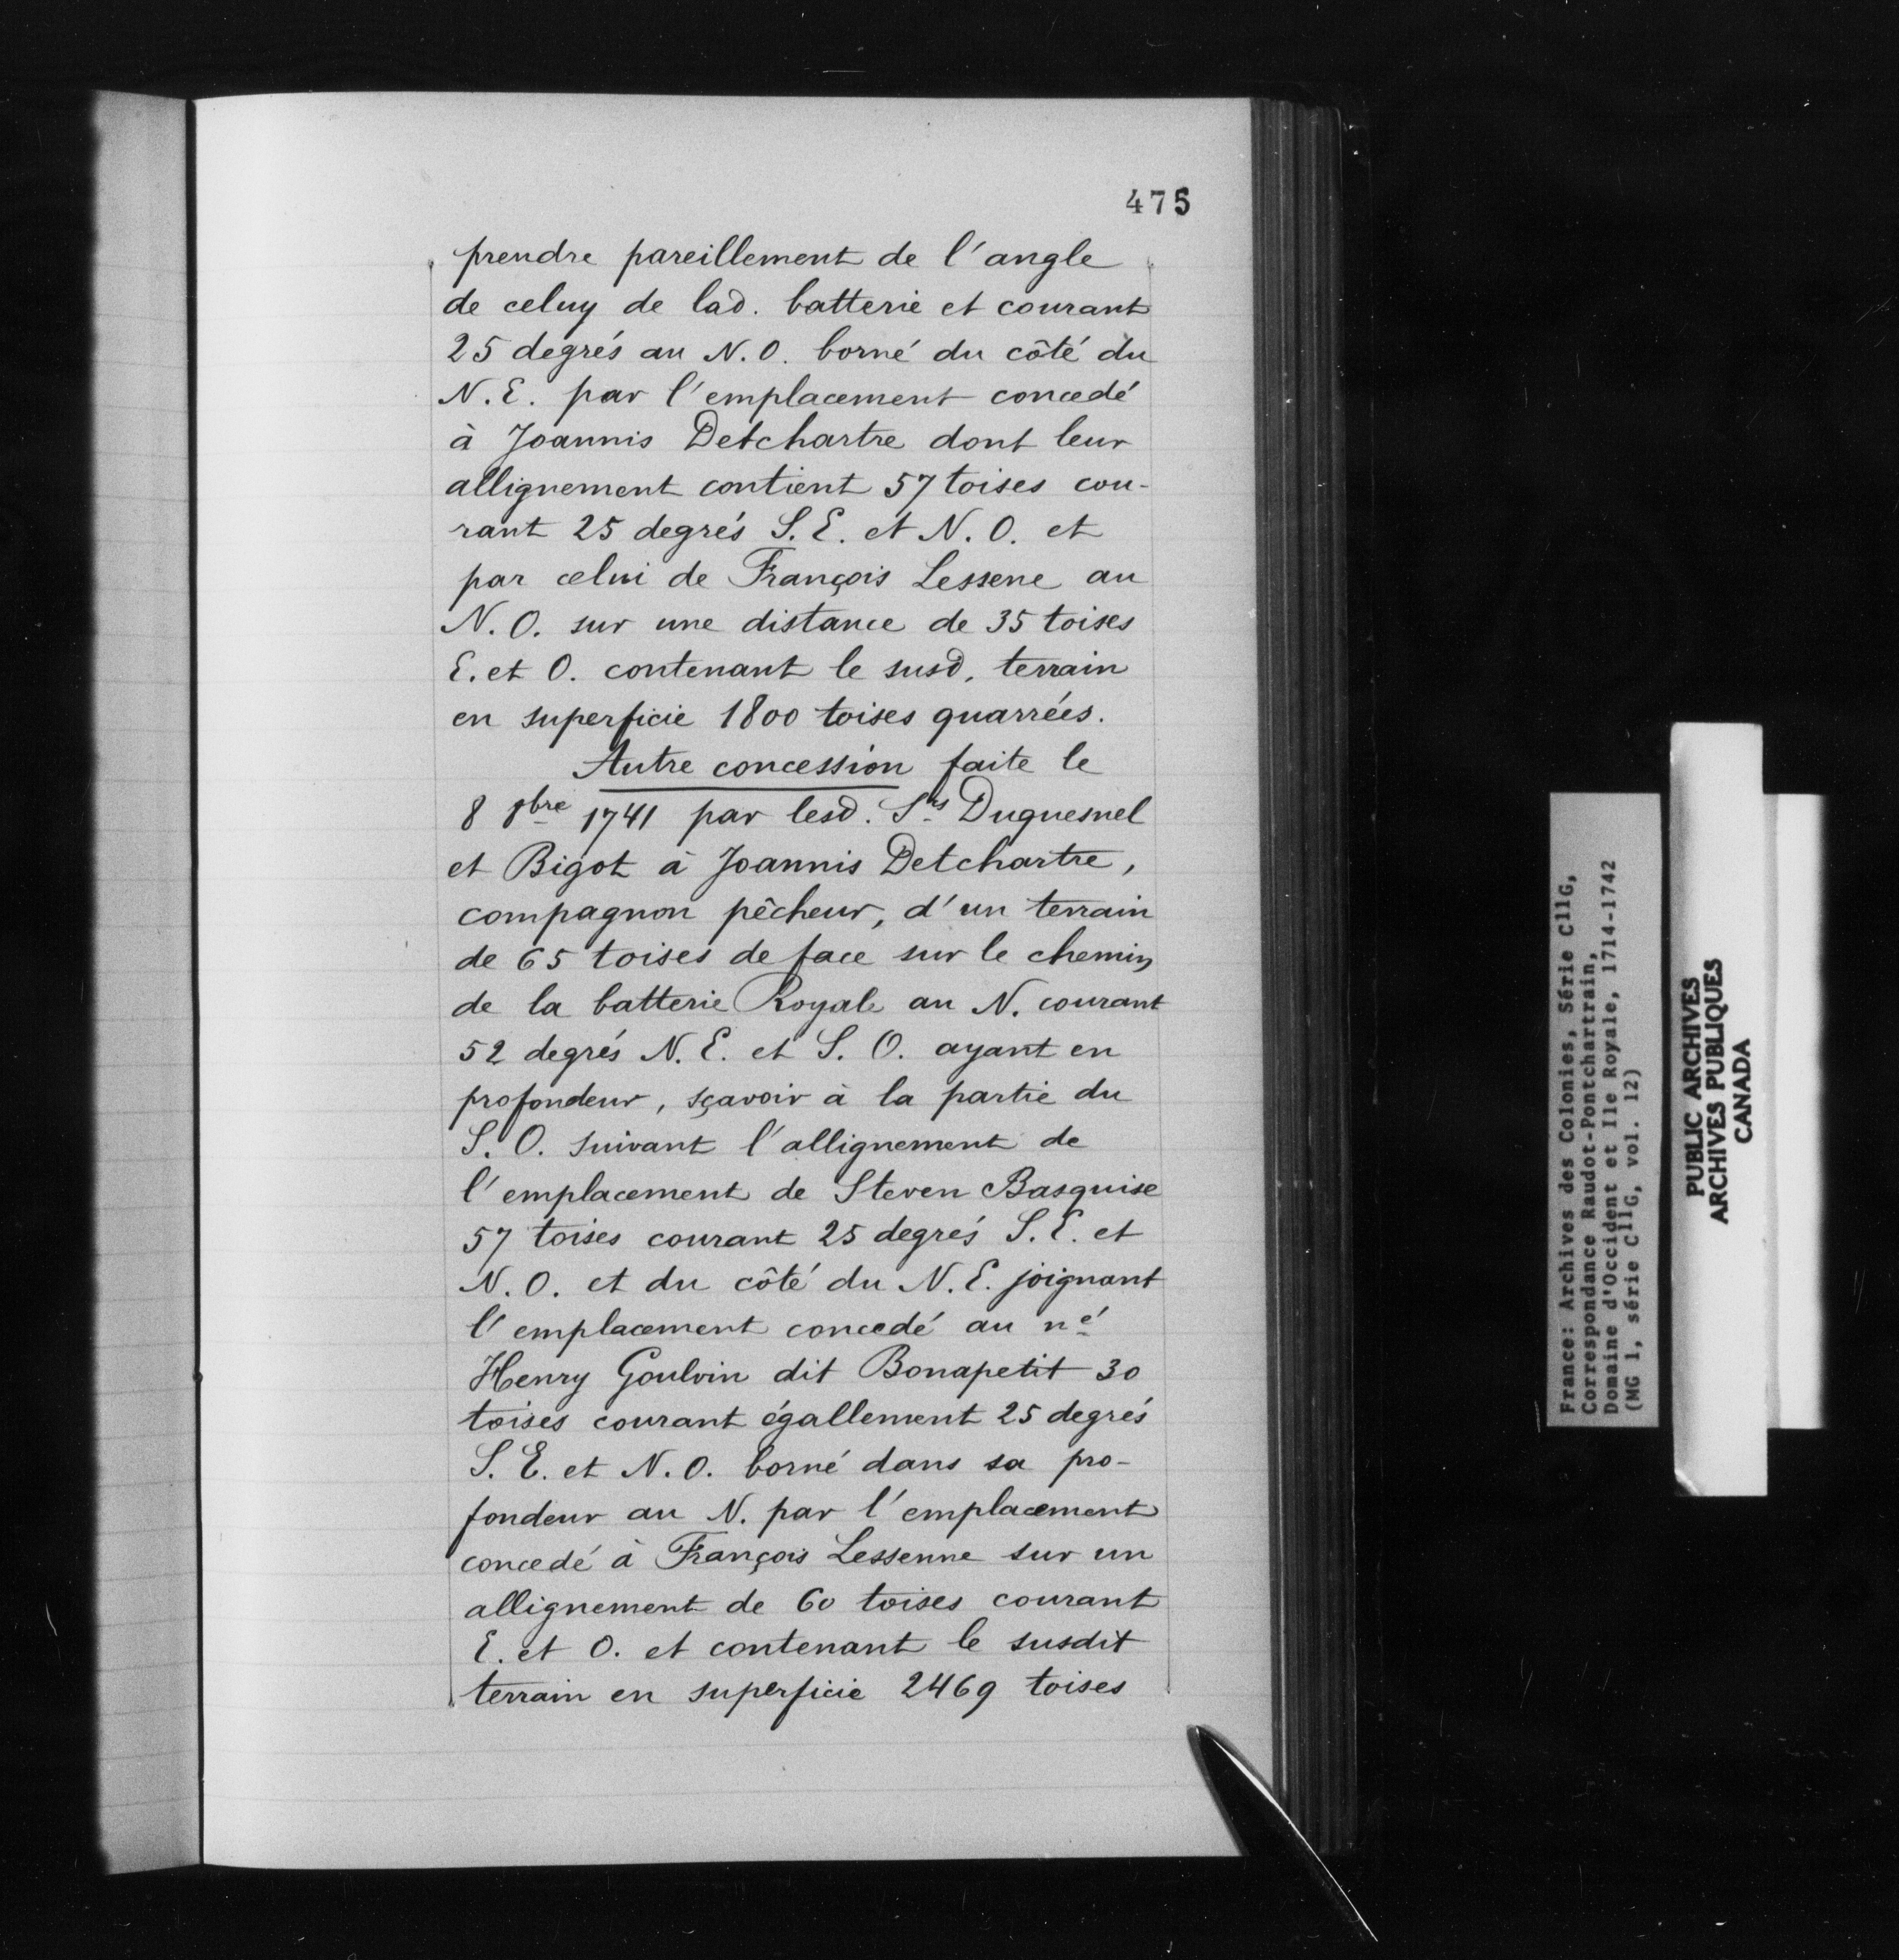 475
prendre pareillement de l'angle
de celuy de lad. batterie et courant
25 degrés au N.O. borné du côté du
N.E. par l'emplacement concedé
à Joannis Detchartre dont leur
allignement contient 57 toises cou-
rant 25 degrés S.E. et N.O. et
par celui de François Lessene au
N.O. sur une distance de 35 toises
E. et O. contenant le susd. terrain
en superficie 1800 toises quarrées.
Autre concession faite le
8 8bre 1741 par lesd. Srs Duquesnel
et Bigot à Joannis Detchartre,
compagnon pêcheur, d'un terrain
de 65 toises de face sur le chemin
de la batterie Royale au N. courant
52 degrés N.E. et S.O. ayant en
profondeur, sçavoir à la partie du
S.O. suivant l'allignement de
l'emplacement de Steven Basquise
57 toises courant 25 degrés S.E. et
N.O. et du côté du N.E. joignant
l'emplacement concedé au né
Henry Goulvin dit Bonapetit 30
toises courant égallement 25 degrés
S.E. et N.O. borné dans sa pro-
fondeur au N. par l'emplacement
concedé à François Lessenne sur un
allignement de 60 toises courant
E. et O. et contenant le susdit
terrain en superficie 2469 toises
France: Archives des Colonies, Série C11G,
Correspondance Raudot-Pontchartrain,
Domaine d'Occident et Ile Royale, 1714-1742
(MG 1, série C11G, vol. 12)
PUBLIC ARCHIVES
ARCHIVES PUBLIQUES
CANADA